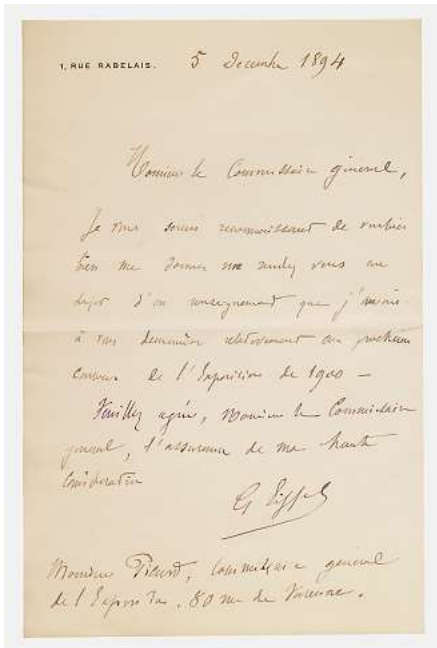 1, RUE RABELAIS. 5 Decembre 1894
Monsieur le Commissaire général,
Je vous serais reconnaissant de vouloir
bien me donner un rendez vous au
sujet d'un renseignement que j'aurais
à vous demander relativement au prochain
concours de l'Exposition de 1900 —
Veuillez agréer, Monsieur le Commissaire
général, l'assurance de ma haute
Considération
G Eiffel
Monsieur Picard, Commissaire général
de l'Exposition. 80 rue de Varenne.